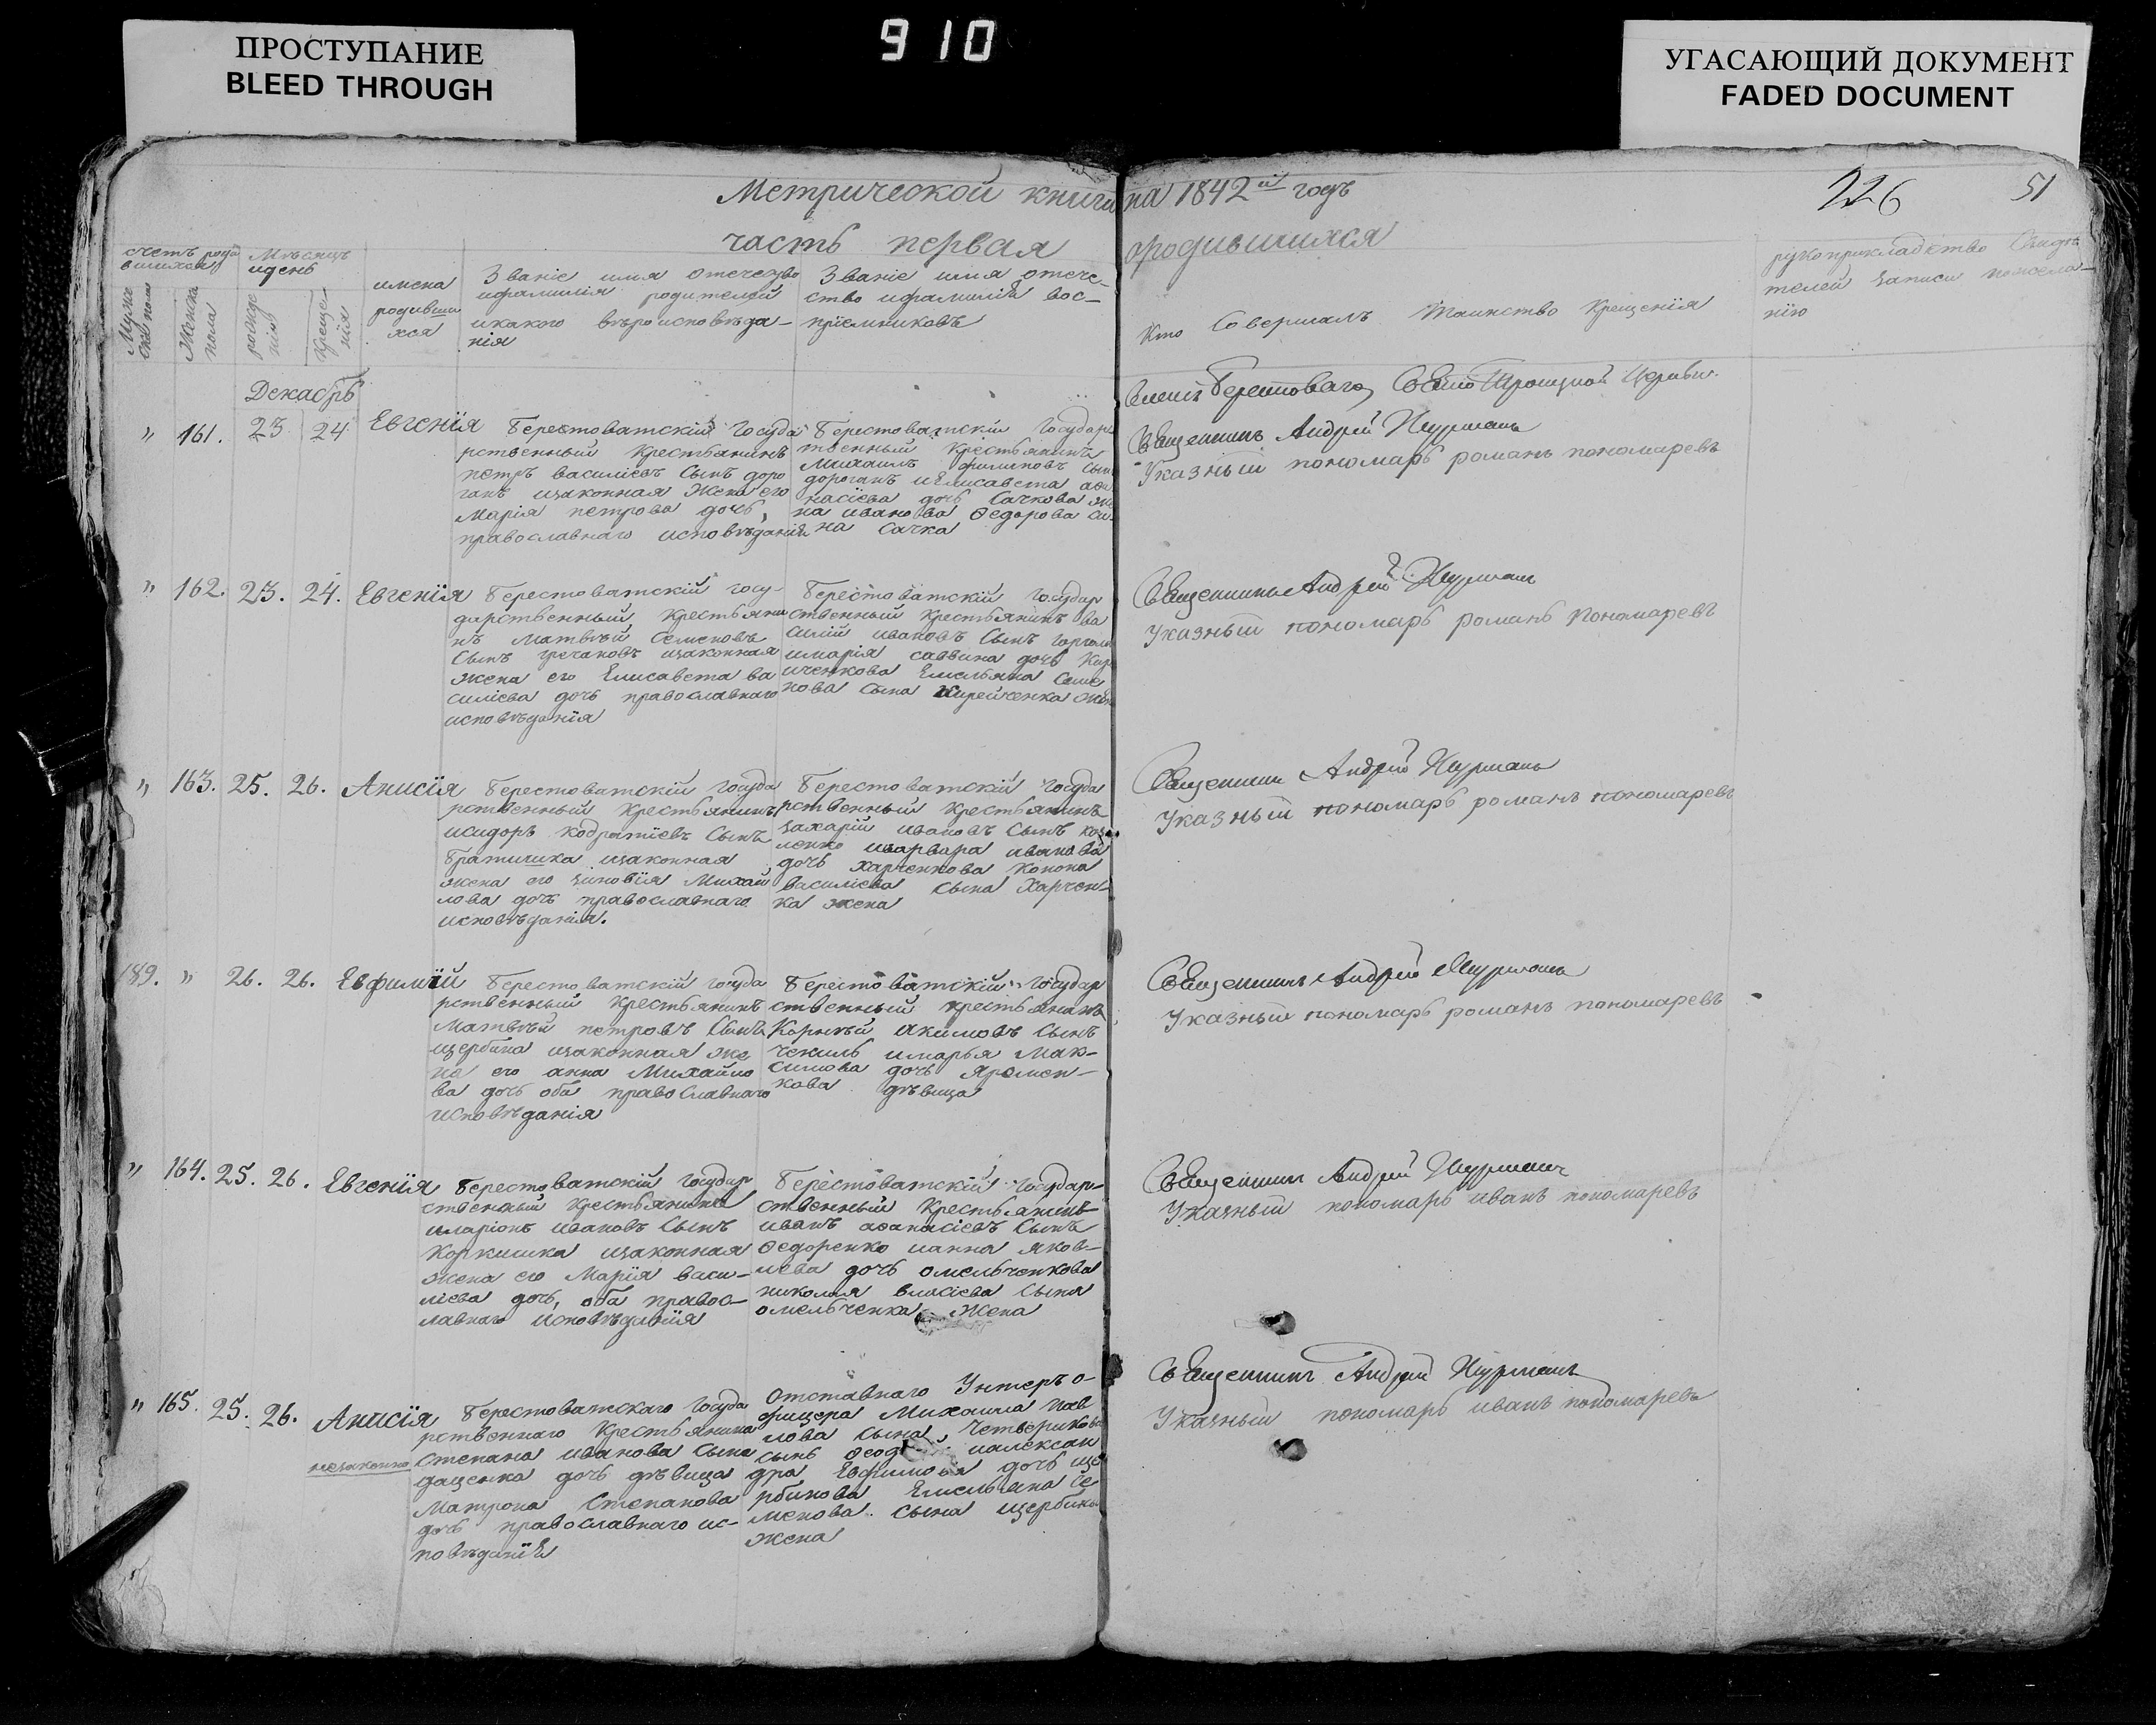 ПРОСТУПАНИЕ
BLEED THROUGH
910
УГАСАЮЩИЙ ДОКУМЕНТ
FADED DOCUMENT
Метрической книги на 1842й годъ
226
51
часть первая
ородившихся
Мѣсяцъ
идень
Женска
пола
имена
родивши
хся
Званіе имя отечество
ифамилія родителей
икакого вѣроисповѣда-
нія
Званіе имя отече-
ство ифамилія вос-
пріемниковъ
Кто Совершалъ Таинство Крещенія
рукоприкладство Свидѣ
телей записи пожела-
нію
Декабрь
" 161. 23 24 Евгенія
Берестоватскій госуда
рственный Крестьянинъ
петръ василіевъ Сынъ доро
ганъ изаконная Жена его
Марія петрова дочь,
православнаго исповѣданія
Берестоватскій Государ
твенный Крестьянинъ
Михаилъ филиповъ Сын
дороганъ иЕлисавета афа
насіева дочь Сачкова же
на иванова Федорова Сы
на Сачка
Берестоваго, Церкви.
Священникъ Андрей
Указный пономарь романъ пономаревъ
" 162. 23. 24. Евгенія
Берестоватскій госу-
дарственный Крестьяни
нъ матвѣй Семеновъ
Сынъ гречановъ изаконная
жена его Елисавета ва
силіева дочь православнаго
исповѣданія
Берестоватскій Государ
ственный Крестьянинъ ва
силій ивановъ Сынъ
имарія саввина дочь
Емельяна Семе
нова Сына Кирейченка жен
Священникъ Андрей
Указный пономарь романъ пономаревъ
" 163. 25. 26. Анисія
Берестоватскій госуда
рственный Крестьянинъ
исидоръ кодратіевъ Сынъ
братишка изаконная
жена его зиновія Михай
лова дочь православнаго
исповѣданія.
Берестоватскій госуда
рственный Крестьянинъ
захарій ивановъ Сынъ коз
ленко иварвара иванова
дочь харченкова Конона
василіева Сына Харчен-
ка жена
Священникъ Андрей
Указный пономарь романъ пономаревъ
189. " 26. 26. Евфимій
Берестоватскій госуда
рственный Крестьянинъ
Матвѣй петровъ Сынъ
щербина изаконная же
на его анна Михайло
ва дочь оба православнаго
исповѣданія
Берестоватскій Государ
ственный крестьянинъ
Корнѣй акимовъ Сынъ
имарья Мак-
симова дочь Яромен-
кова дѣвица
Священникъ Андрей
Указный пономарь романъ пономаревъ
" 164. 25. 26. Евгенія
Берестоватскій Государ
ственный Крестьянинъ
иларіонъ ивановъ Сынъ
Коркишка изаконная
жена его Марія васи-
ліева дочь, оба правос-
лавнаго исповѣданія
Берестоватскій государ-
ственный Крестьянинъ
иванъ афанасіевъ Сынъ
Федоренко ианна яков-
лева дочь омельченкова
николая власіева Сына
омельченка Жена
Священникъ Андрей
Указный пономарь иванъ пономаревъ
" 165. 25. 26. Анисія
незаконно
Берестоватскаго госуда
рственнаго Крестьянина
Степана иванова Сына
дащенка дочь дѣвица
Матрона Степанова
дочь православнаго ис-
повѣданія
Отставнаго Унтеръ о-
фицера Михаила пав
лова Сына, Четверикова
сынъ иалексан
дра Евфимова дочь ще
рбинова Емельяна Се
менова Сына щербины
жена
Священникъ Андрей
Указный пономарь иванъ пономаревъ